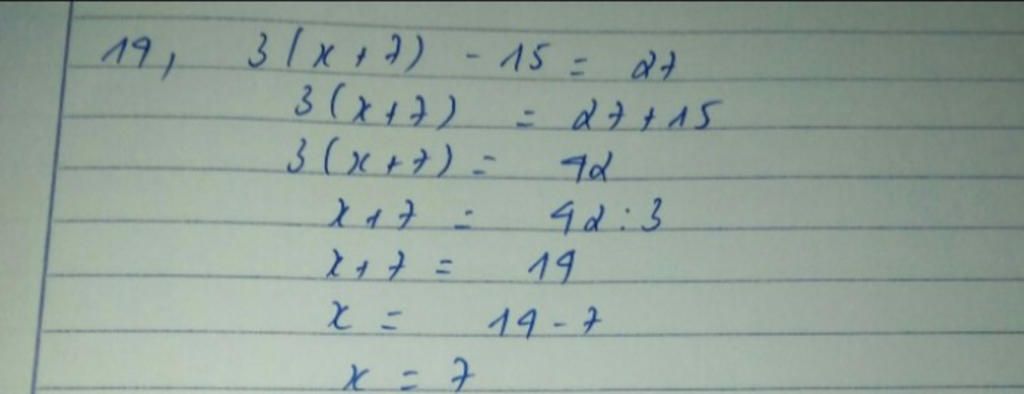 14, 3(x+7) - 15 = 27
3(x+7) = 27+15
3(x+7) = 42
x+7 = 42:3
x+7 = 14
x = 14-7
x = 7